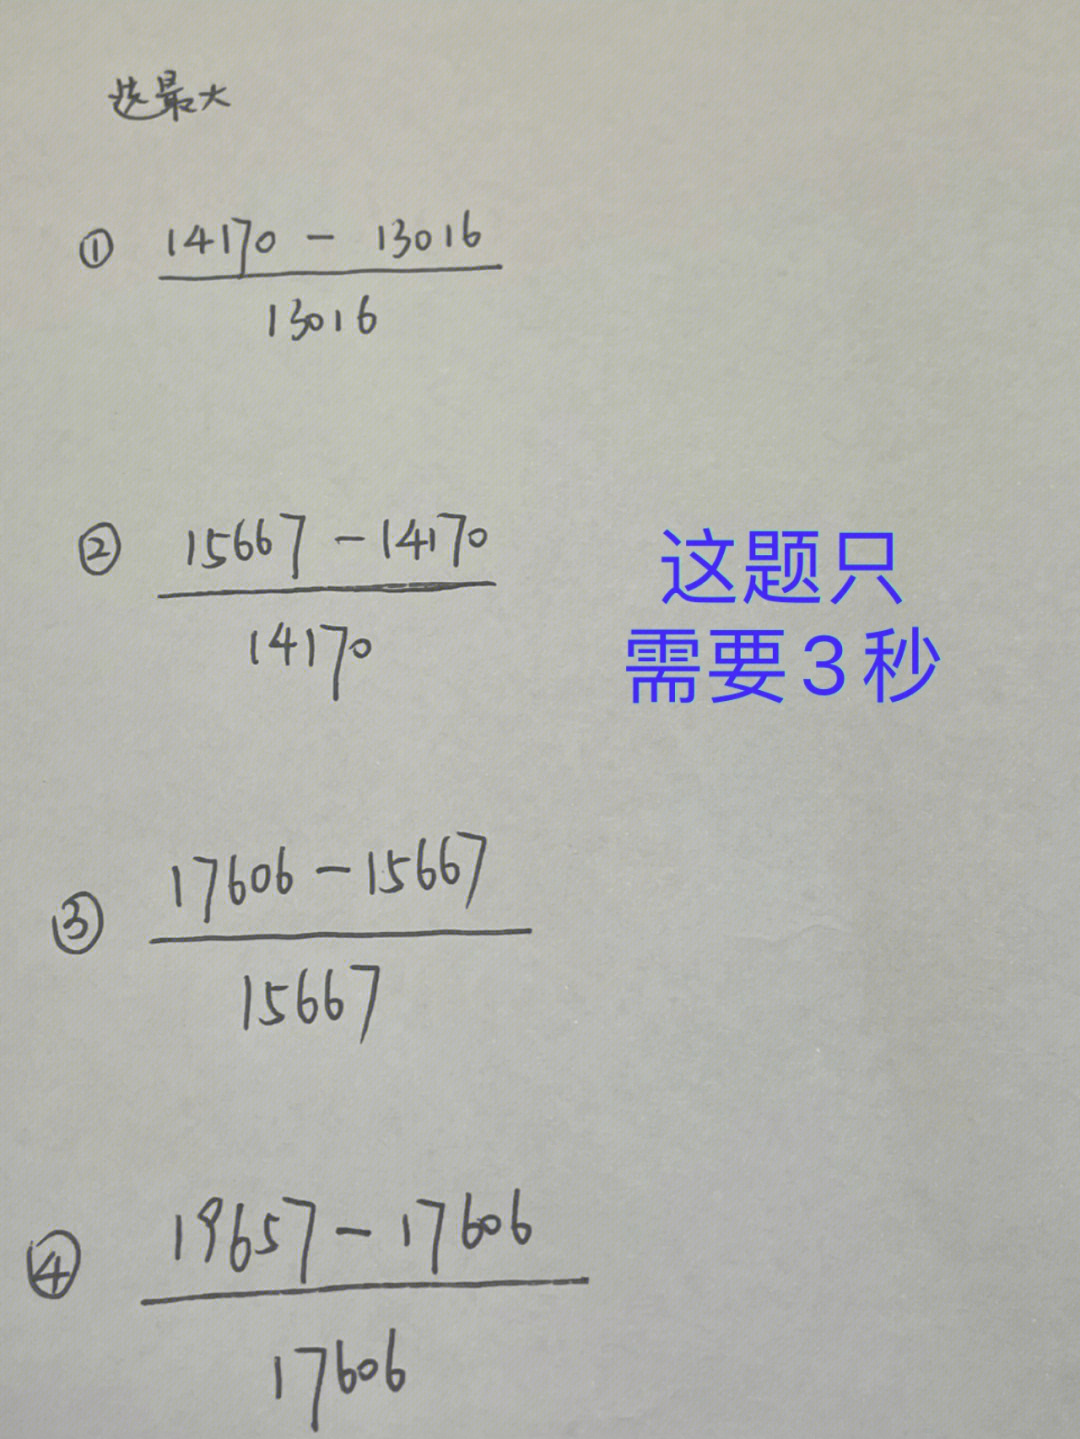 选最大
① 14170 - 13016
13016
② 15667 - 14170
14170
这题只
需要3秒
③ 17606 - 15667
15667
④ 19657 - 17606
17606